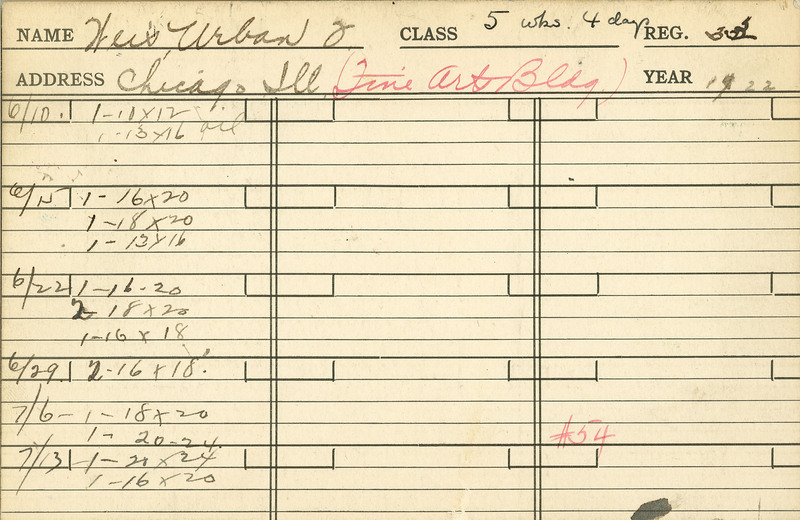 NAME Weis, Urban J CLASS 5 wks. 4 days REG.
ADDRESS Chicago Ill (Fine Arts Bldg) YEAR 1922
6/10. 1-11x12
1-13x16 oil
6/15 1-16x20
1-18x20
1-13x16
6/22 1-16-20
2-18x20
1-16x18
6/29. 2-16x18.
7/6- 1-18x20
1- 20-24.
#54
7/13 -1-20x24
1-16x20